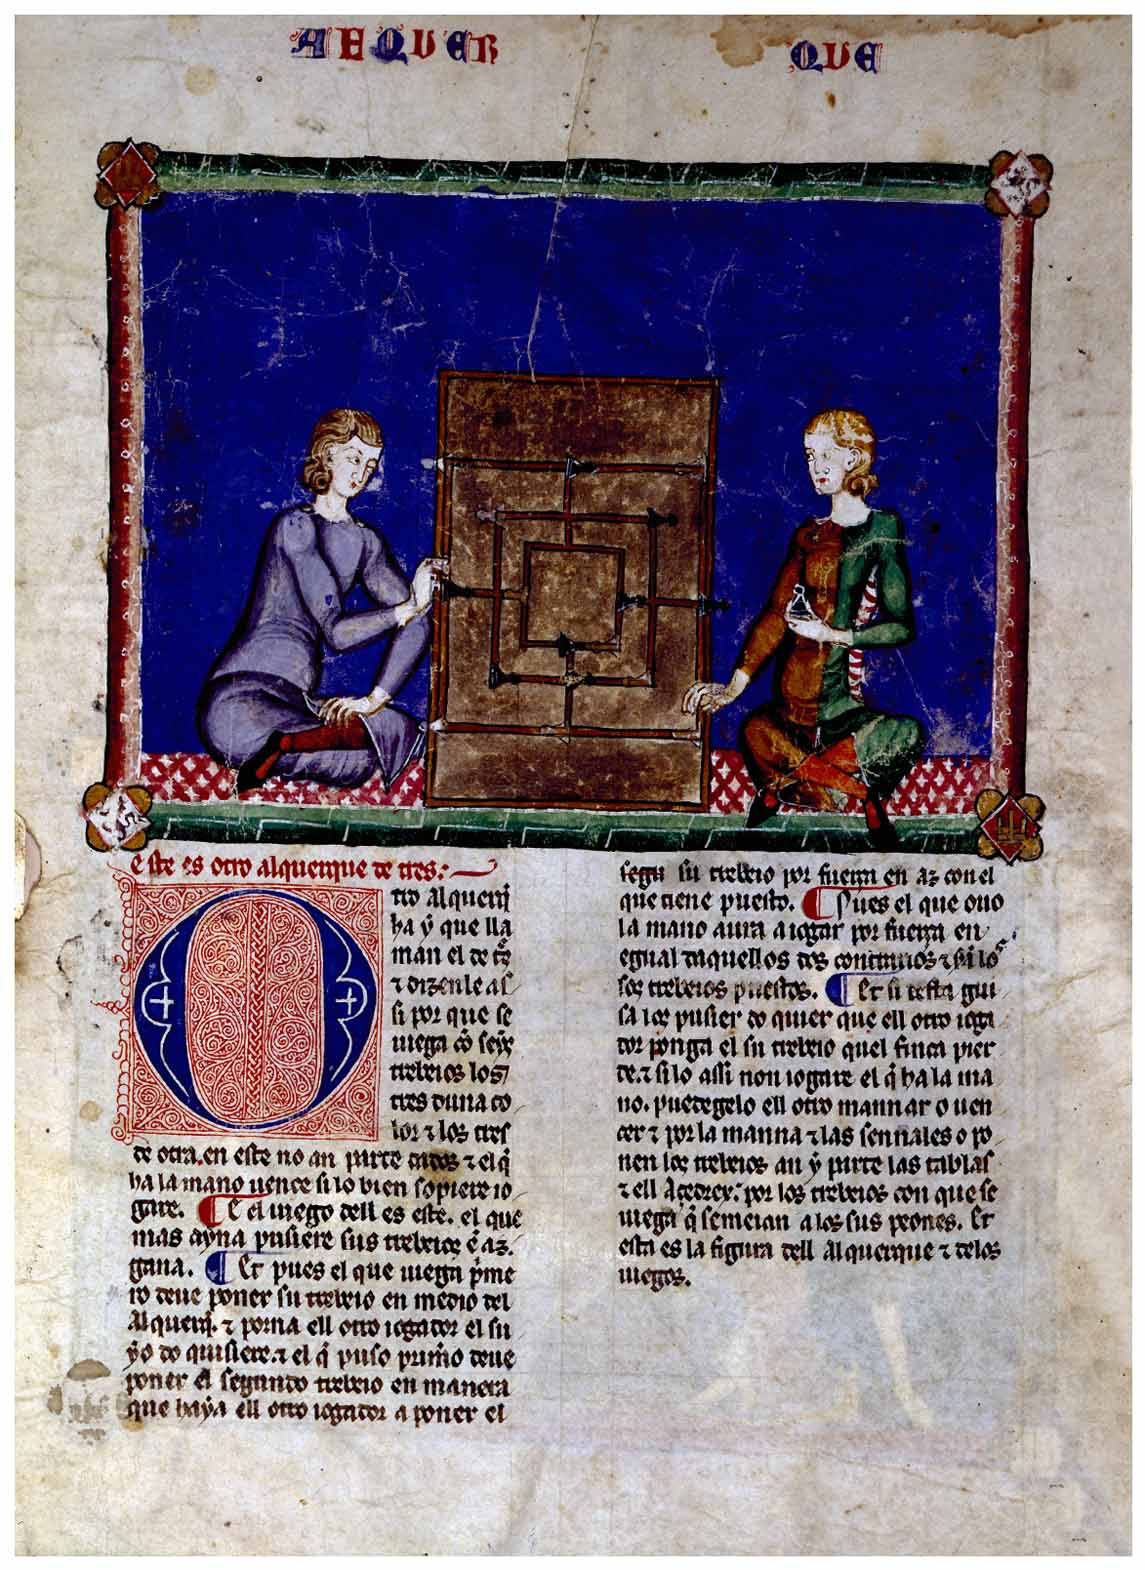 ALQUER QUE
Este es otro alquerque de tres:
tro alquerq̃
ha ý que lla
man el de tr̃
⁊ dizenle as
si por que se
iuega cõ seyx
trebeios los
tres duna co
lor ⁊ los tres
de otra. en este no an parte dados ⁊ el q̃
ha la mano uence si lo bien sopiere io
gare. ¶ E el iuego dell es este. el que
mas ayna pusiere sus trebeios ẽ az.
gana. ¶ Et pues el que iuega p̃me
ro deue poner su trebeio en medio del
Alquerq̃. ⁊ porna ell otro iogador el su
yo do quisiere. ⁊ el q̃ puso primo deue
poner el segundo trebeio en manera
que haya ell otro iogador a poner el
segũ su trebeio por fuerça en az con el
que tiene puesto. ¶ Pues el que ouo
la mano aura a iogar por fuerça en
egual daquellos dos contrarios ⁊ si los
sos trebeios puestos. ¶ Et si desta gui
sa los pusier do quier que ell otro ioga
dor ponga el su trebeio quel finca pier
de. ⁊ si lo assi non iogare el q̃ ha la ma
no. puedegelo ell otro mannar o uen
cer ⁊ por la manna ⁊ las sennales o po
nen los trebeios an ý parte las tablas
⁊ ell Açedrex: por los trebeios con que se
iuega q̃ semeian a los sus peones. Et
esta es la figura dell alquerque ⁊ delos
iuegos.